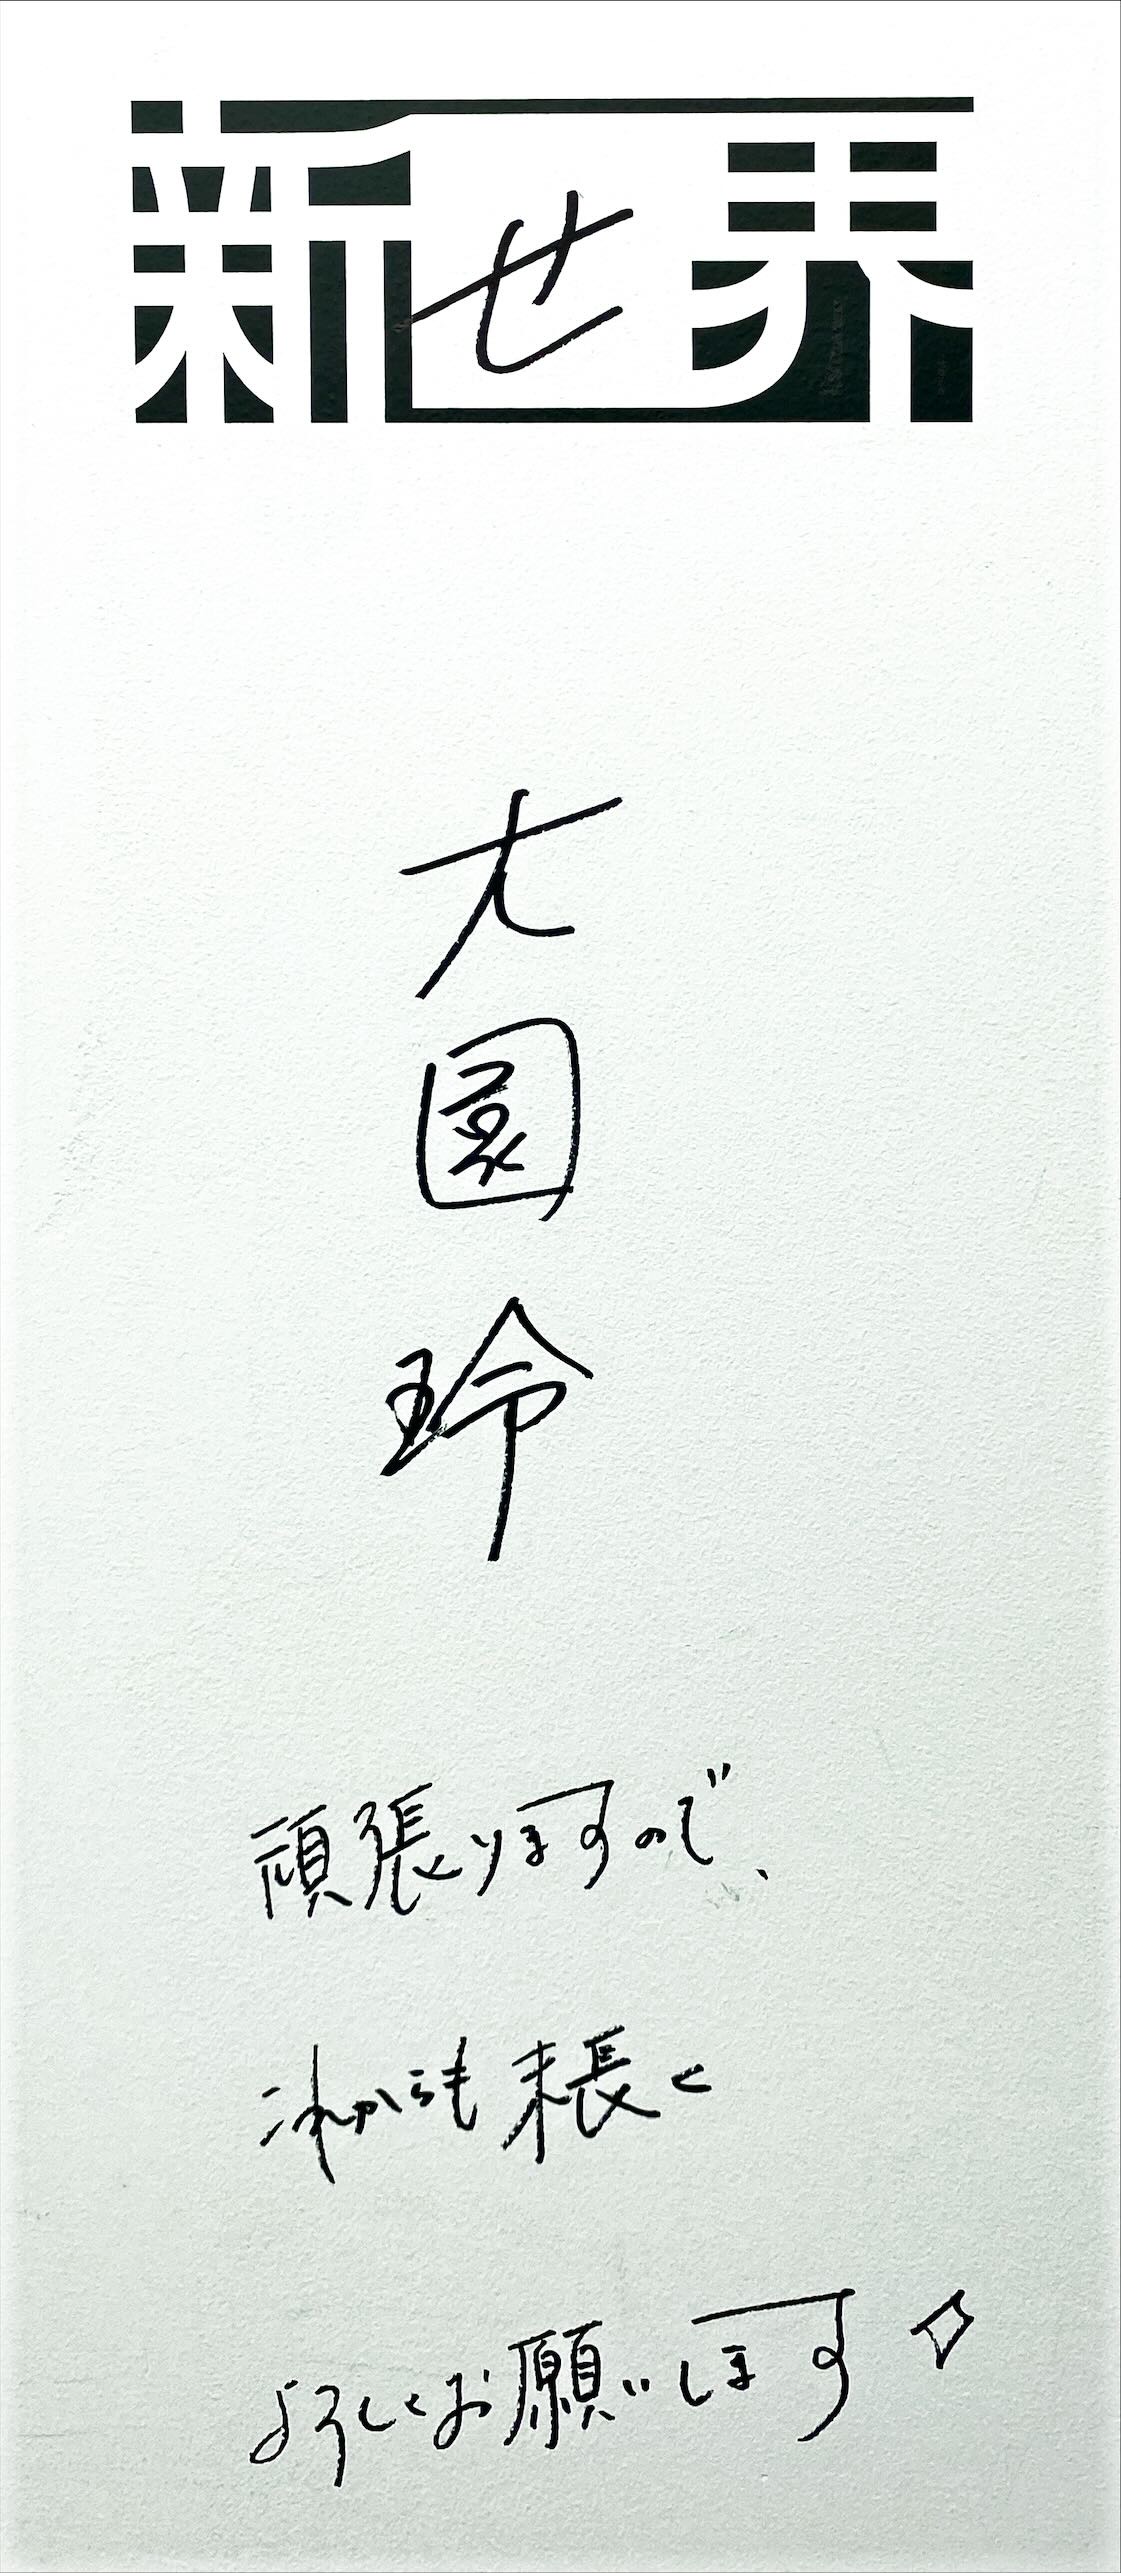 新せ界
大
園
玲
頑張りますので、
これからも末長く
よろしくお願いします